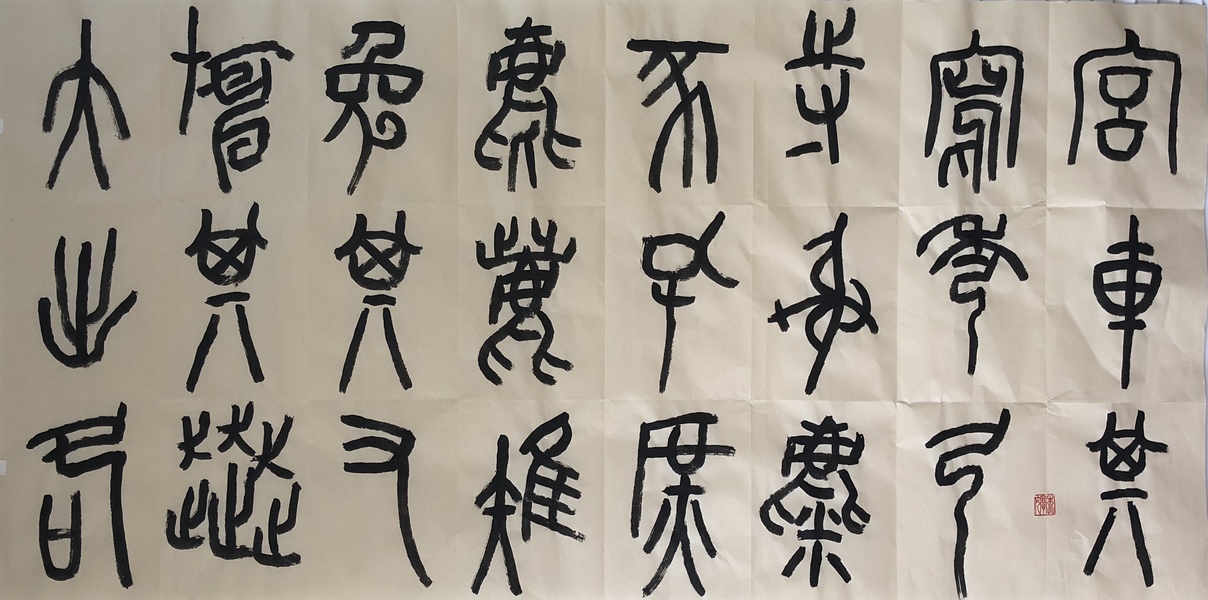 宮車其
寫秀弓
寺射麋
豕孔庶
麀鹿雉
兔其又
其奔
大出各